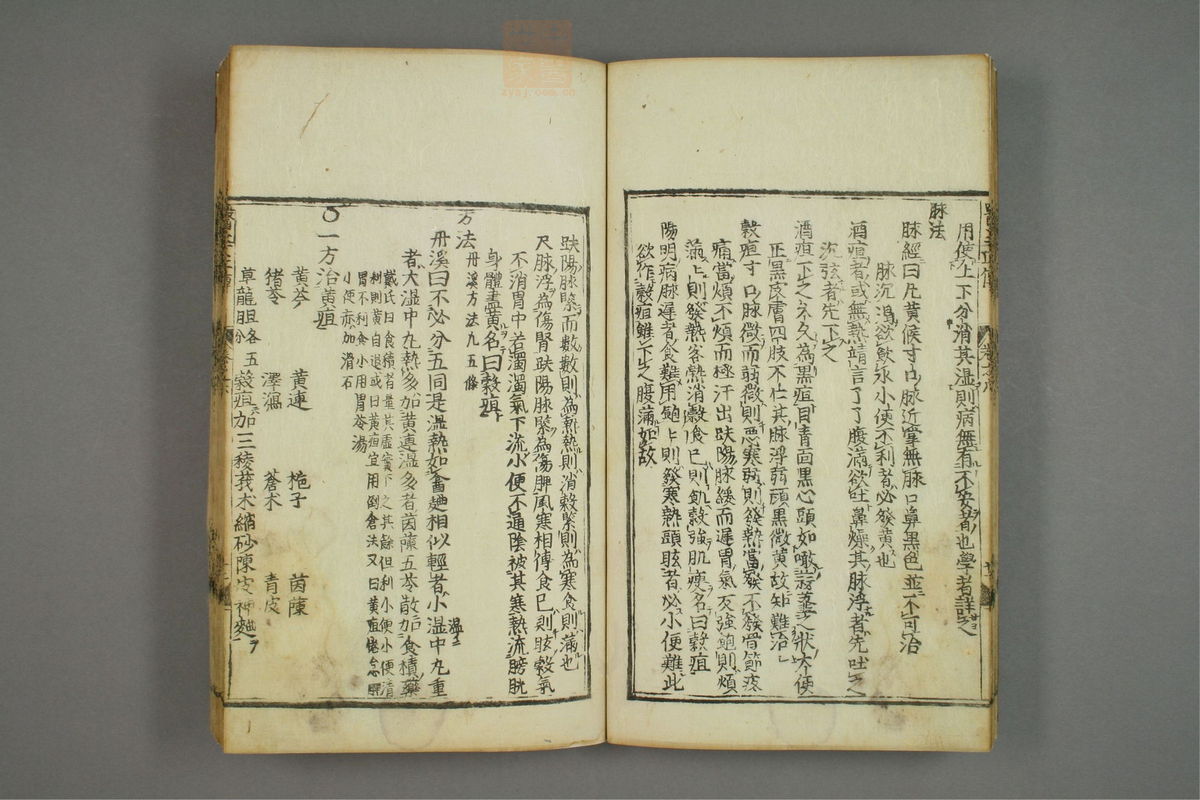 用使上下分消其湿則病無有不安者也學者詳之
脉法
脉經曰凡黄候寸口脉近掌無脉口鼻黒色並不可治
脉沉渇欲飲水小便不利者必發黄也
酒疸者或無熱靖言了了腹滿欲吐鼻燥其脉浮者先吐之
沉弦者先下之
酒疸下之不久為黒疸目青面黒心頭如噉蒜虀之狀大便
正黒皮膚四肢不仁其脉浮弱頭黒微黄故知難治
穀疸寸口脉微而弱微則悪寒弱則發熱當發不發骨節疼
痛當煩不煩而極汗出趺陽脉緩而遲胃氣反強飽則煩
滿上則發熱客熱消穀食已則飢穀強肌瘦名曰穀疸
陽明病脉遲者食難用飽上則發寒熱頭眩者必小便難此
欲作穀疸雖下之腹滿如故
趺陽脉緊而數數則為熱熱則消穀緊則為寒食則滿也
尺脉浮為傷腎趺陽脉緊為傷脾風寒相傳食已則眩穀氣
不消胃中若濁濁氣下流小便不通陰被其寒熱流膀胱
身體盡黄名曰穀疸
方法
丹溪方法九五條
丹溪曰不必分五同是湿熱如盦麯相似輕者小湿中丸重
者大湿中丸熱多加黄連湿多者茵蔯五苓散加食積藥
戴氏曰食積者量其虚實下之其餘但利小便小便清
利則黄自退或曰黄疸宜用倒倉法又曰黄疸倦怠脾
胃不利食小用胃苓湯
小便赤加滑石
一方治黄疸
黄芩 黄連 梔子 茵蔯
猪苓 澤瀉 蒼朮 青皮
草龍胆各五分 穀疸加三稜莪朮縮砂陳皮神麯
zysj.com.cn